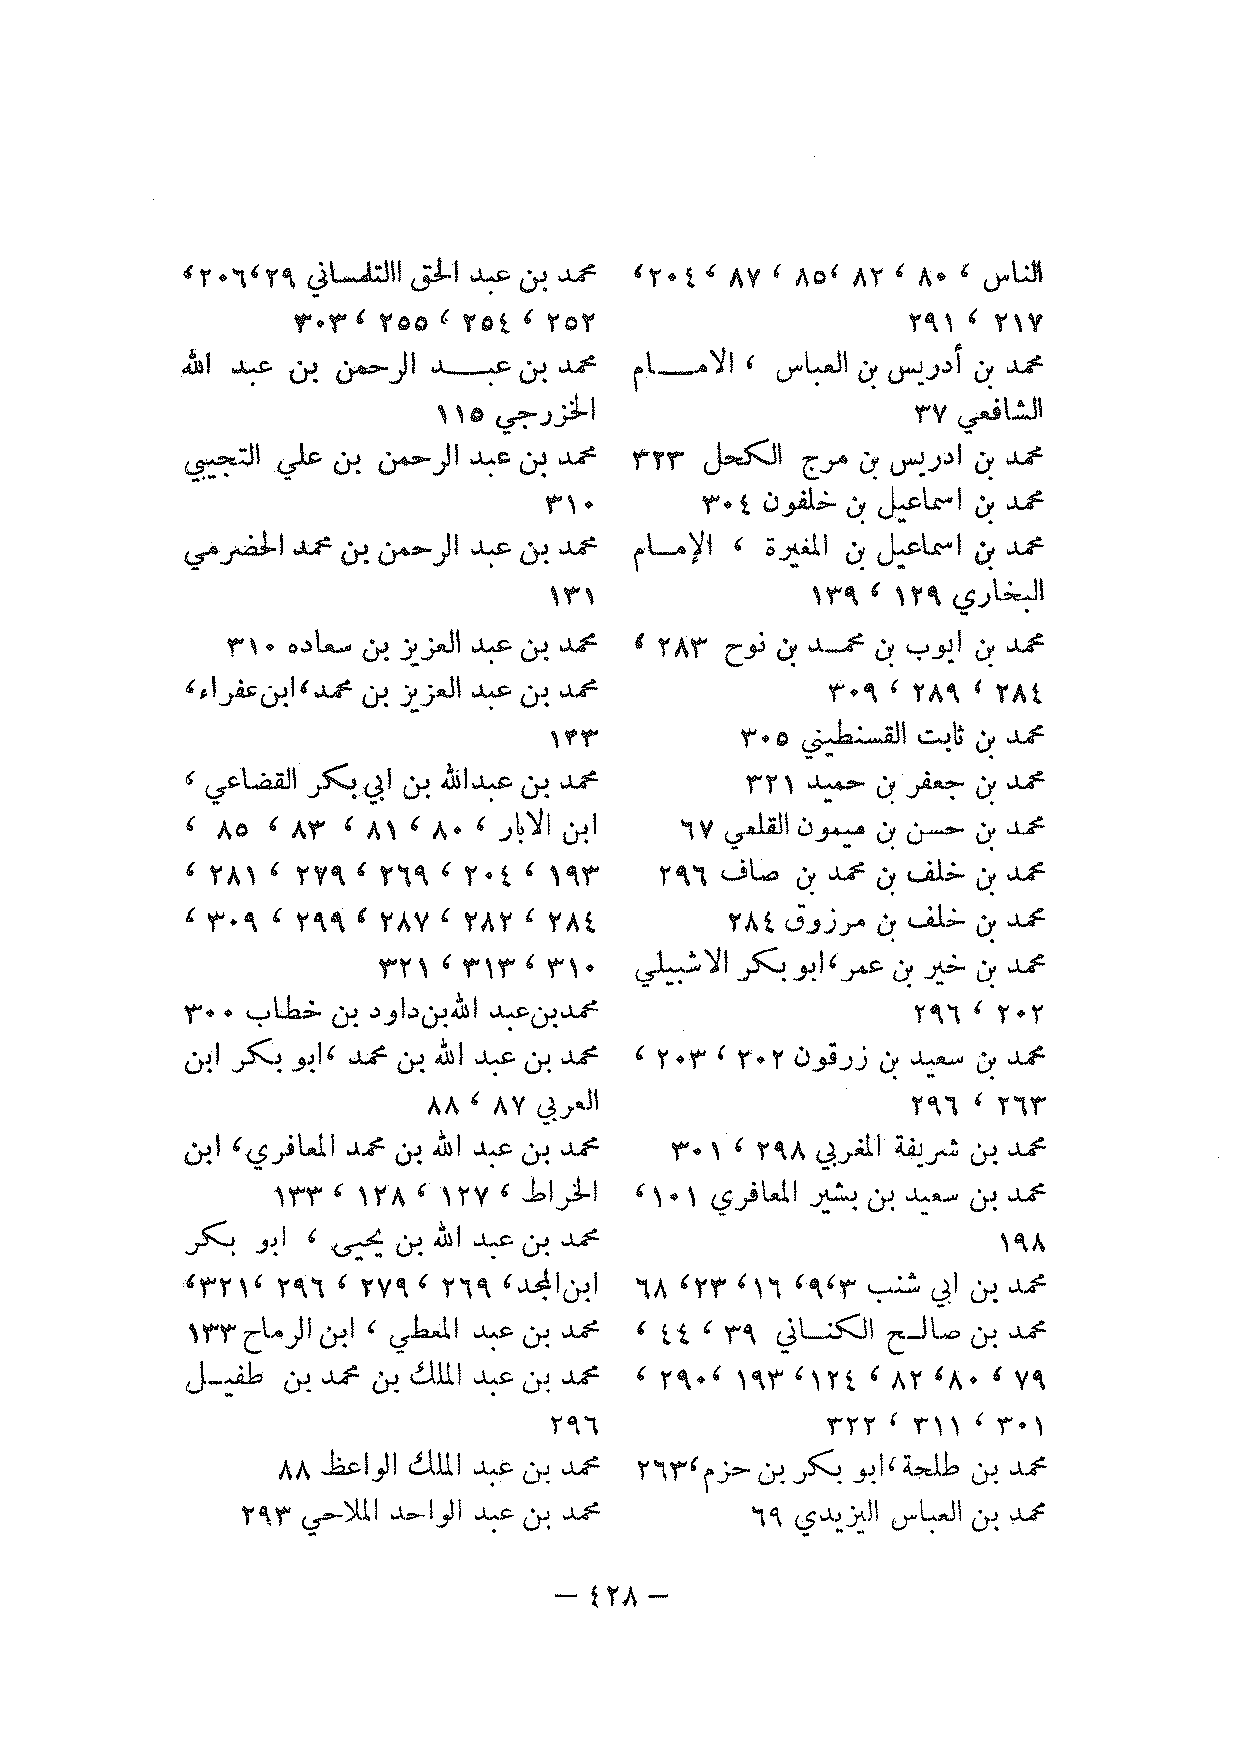 الناس ، ٨٠ ، ٨٢ ، ٨٥ ، ٨٧ ، ٢٠٤ ،
٢١٧ ، ٢٩١
محمد بن أدريس بن العباس ، الامـــام
الشافعي ٣٧
محمد بن ادريس بن مرج الكحل ٣٢٣
محمد بن اسماعيل بن خلفون ٣٠٤
محمد بن اسماعيل بن المغيرة ، الإمـام
البخاري ١٢٩ ، ١٣٩
محمد بن ايوب بن محمـد بن نوح ٢٨٣ ،
٢٨٤ ، ٢٨٩ ، ٣٠٩
محمد بن ثابت القسنطيني ٣٠٥
محمد بن جعفر بن حميد ٣٢١
محمد بن حسن بن ميمون القلعي ٦٧
محمد بن خلف بن محمد بن صاف ٢٩٦
محمد بن خلف بن مرزوق ٢٨٤
محمد بن خير بن عمر، ابو بكر الاشبيلي
٢٠٢ ، ٢٩٦
محمد بن سعيد بن زرقون ٢٠٢ ، ٢٠٣ ،
٢٦٣ ، ٢٩٦
محمد بن شريفة المغربي ٢٩٨ ، ٣٠١
محمد بن سعيد بن بشير المعافري ١٠١ ،
١٩٨
محمد بن ابي شنب ٣،٩، ١٦، ٢٣، ٦٨
محمد بن صالـح الكنـاني ٣٩ ، ٤٤ ،
٧٩ ، ٨٠، ٨٢ ، ١٢٤، ١٩٣ ،٢٩٠ ،
٣٠١ ، ٣١١ ، ٣٢٢
محمد بن طلحة، ابو بكر بن حزم، ٢٦٣
محمد بن العباس اليزيدي ٦٩
محمد بن عبد الحق االتلمساني ٢٩،٢٠٦،
٢٥٢ ، ٢٥٤ ، ٢٥٥ ، ٣٠٣
محمد بن عبـــد الرحمن بن عبد الله
الخزرجي ١١٥
محمد بن عبد الرحمن بن علي التجيبي
٣١٠
محمد بن عبد الرحمن بن محمد الحضرمي
١٣١
محمد بن عبد العزيز بن سعاده ٣١٠
محمد بن عبد العزيز بن محمد، ابن عفراء،
١٢٣
محمد بن عبدالله بن ابي بكر القضاعي ،
ابن الابار ، ٨٠ ، ٨١ ، ٨٣ ، ٨٥ ،
١٩٣ ، ٢٠٤ ، ٢٦٩ ، ٢٧٩ ، ٢٨١ ،
٢٨٤ ، ٢٨٢ ، ٢٨٧ ، ٢٩٩ ، ٣٠٩ ،
٣١٠ ، ٣١٣ ، ٣٢١
محمدبن عبد الله بن داود بن خطاب ٣٠٠
محمد بن عبد الله بن محمد ،ابو بكر ابن
العربي ٨٧ ، ٨٨
محمد بن عبد الله بن محمد المعافري، ابن
الخراط ، ١٢٧ ، ١٢٨ ، ١٣٣
محمد بن عبد الله بن يحيى ، ابو بكر
ابن المجد، ٢٦٩ ، ٢٧٩ ، ٢٩٦ ،٣٢١،
محمد بن عبد المعطي ، ابن الرماح ١٣٣
محمد بن عبد الملك بن محمد بن طفيـل
٢٩٦
محمد بن عبد الملك الواعظ ٨٨
محمد بن عبد الواحد الملاحي ٢٩٣
— ٤٢٨ —